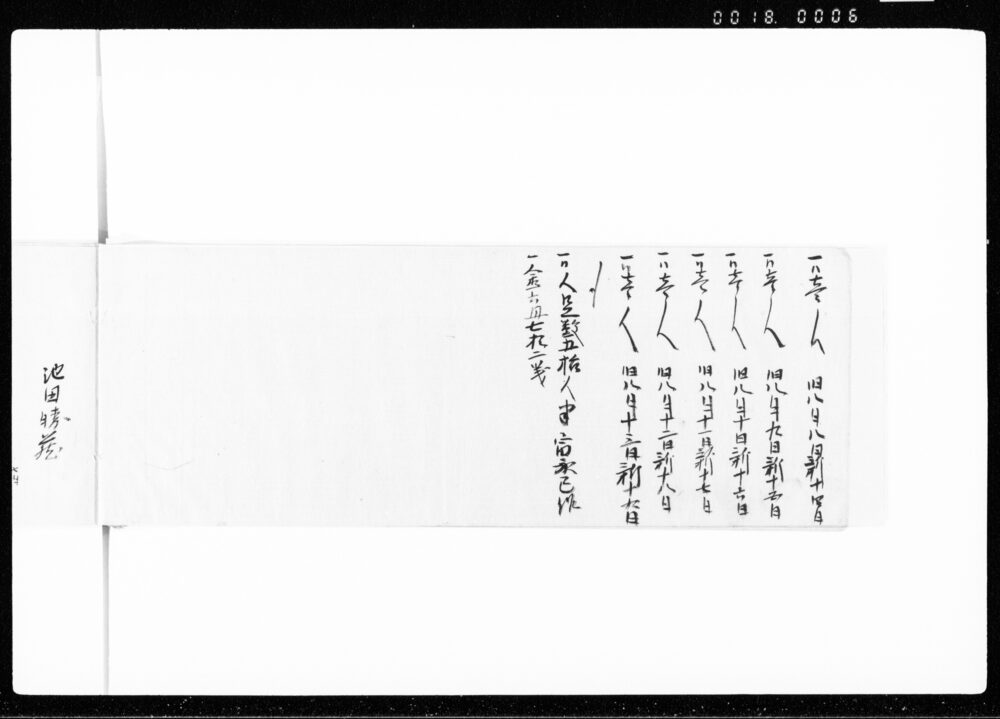 0018.0006
一八壱人 旧八月八日新十四日
一八壱人 旧八月九日新十五日
一八壱人 旧八月十日新十六日
一八壱人 旧八月十一日新十七日
一八壱人 旧八月十二日新十八日
一八壱人 旧八月十三日新十九日
人足数五拾人 富永巳作
一金六円七拾二戋
池田勝蔵